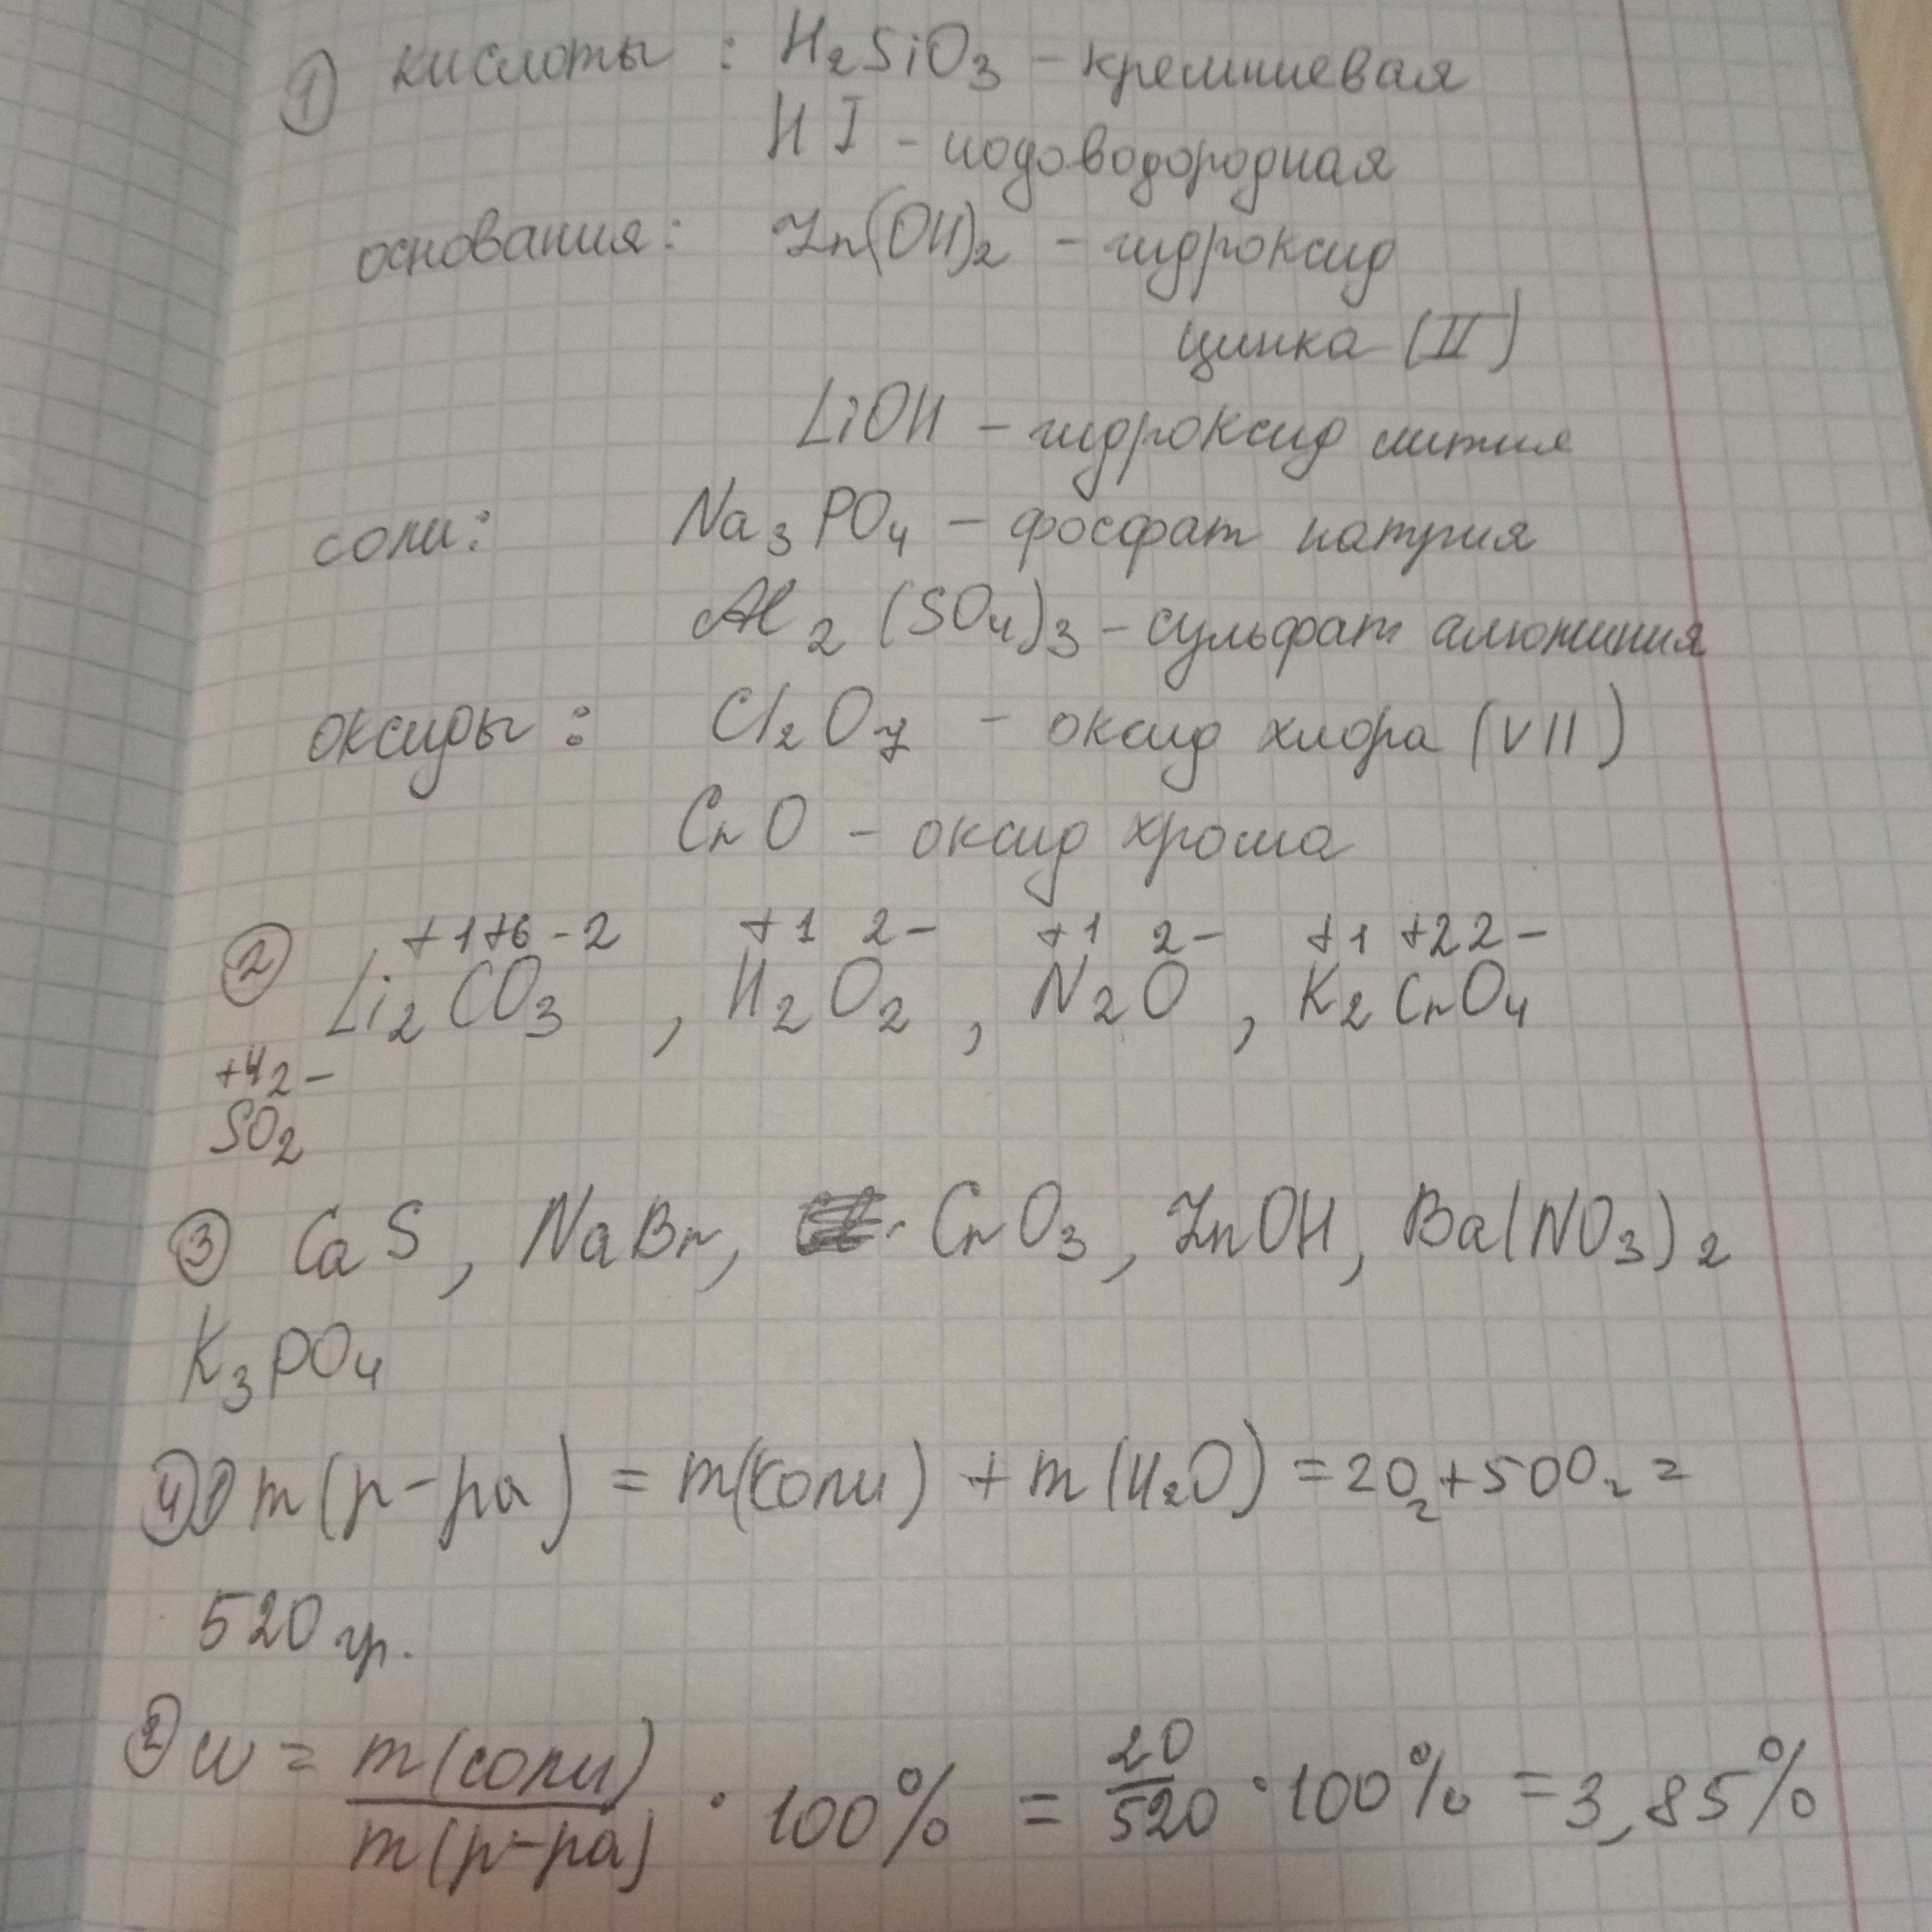 ① кислоты : H₂SiO₃ – кремниевая
HI – иодоводородная
основания: Zn(OH)₂ – гидроксид
цинка (II)
LiOH – гидроксид лития
соли: Na₃PO₄ – фосфат натрия
Al₂(SO₄)₃ – сульфат алюминия
оксиды : Cl₂O₇ – оксид хлора (VII)
CrO – оксид хрома
+1+6-2 +1 2- +1 2- +1 +2 2-
② Li₂CO₃ , H₂O₂ , N₂O , K₂CrO₄
+4 2-
SO₂
③ CaS , NaBr, CrO₃ , ZnOH, Ba(NO₃)₂
K₃PO₄
④ 1) m(р-ра) = m(соли) + m(H₂O) = 20г+500г =
520 гр.
2) w = m(соли)/m(р-ра) · 100% = 20/520 · 100% = 3,85%